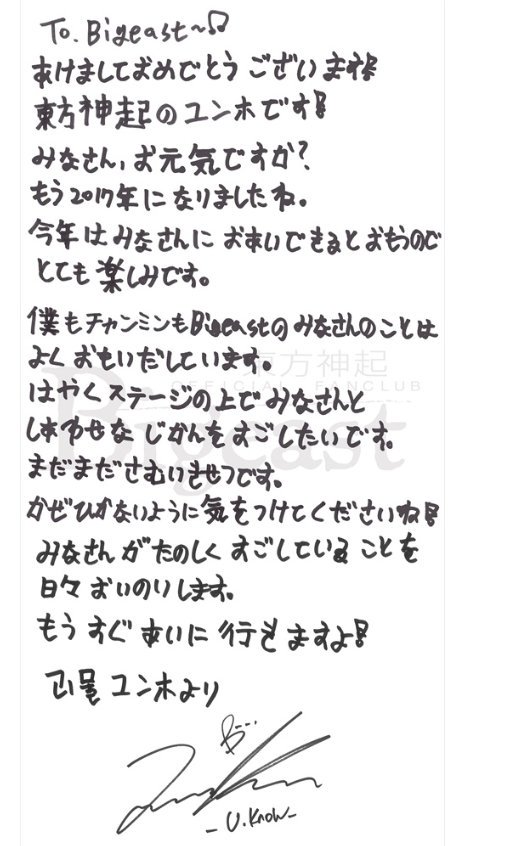 To. Bigeast~♫
あけましておめでとうございます☆
東方神起のユンホです!
みなさん、お元気ですか?
もう2017年になりましたね。
今年はみなさんにおあいできるとおもうので
とても楽しみです。
僕もチャンミンもBigeastのみなさんのことは
よくおもいだしています。
はやくステージの上でみなさんと
しあわせなじかんをすごしたいです。
まだまださむいきせつです。
かぜひかないように気をつけてくださいね!
みなさんがたのしくすごしていることを
日々おいのりします。
もうすぐあいに行きますよ!
ユンホより
- U.Know -
東方神起
OFFICIAL FANCLUB
Bigeast